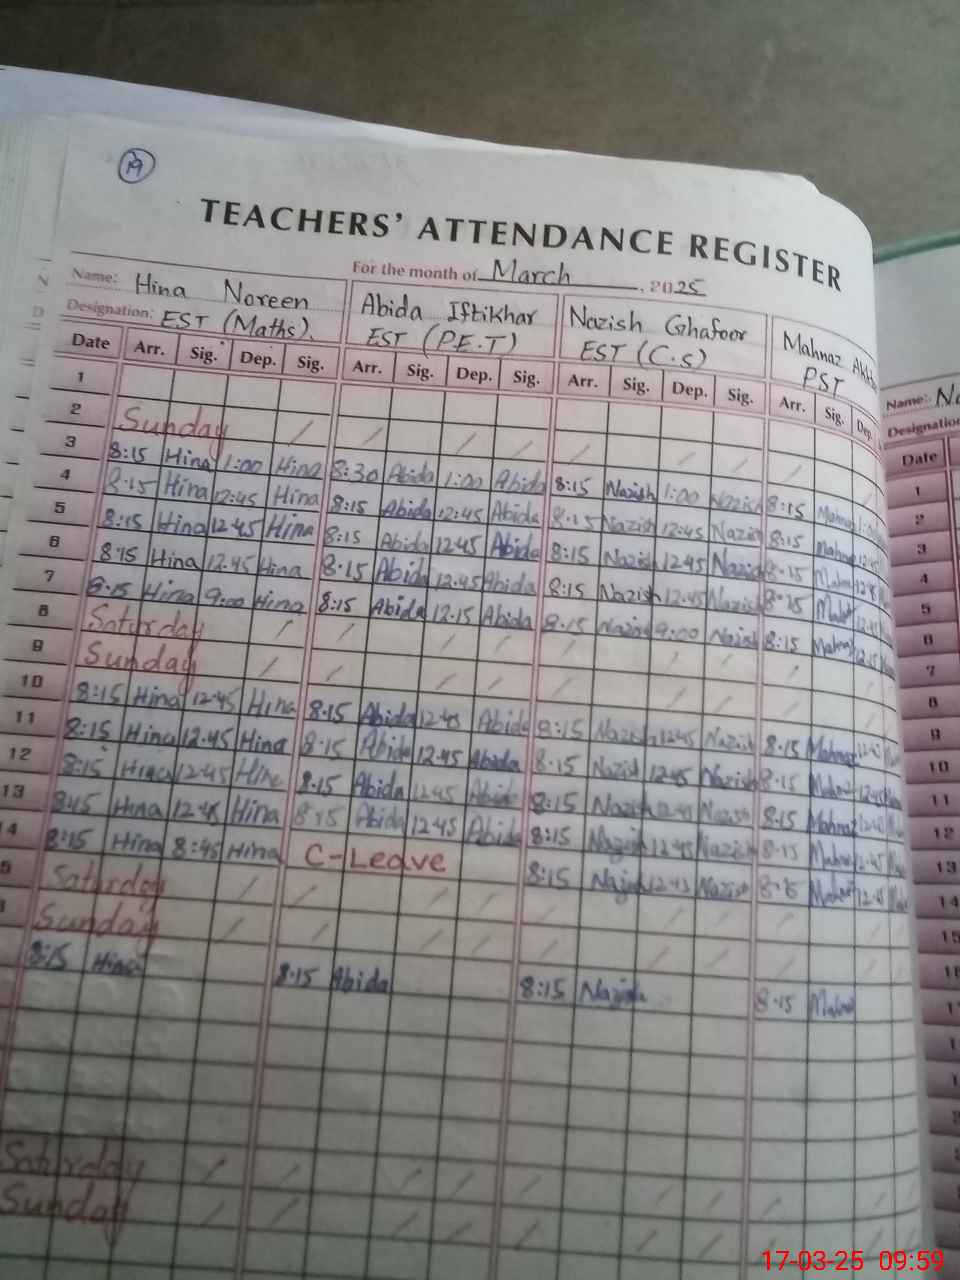 19
TEACHERS' ATTENDANCE REGISTER
For the month of March, 2025
Name: Hina Noreen Abida Iftikhar Nazish Ghafoor Mahnaz
Designation: EST (Maths). EST (P.E.T) EST (C.S) PST
Date Arr. Sig. Dep. Sig. Arr. Sig. Dep. Sig. Arr. Sig. Dep. Sig. Arr. Sig. Dep.
1
2 Sunday
3 8:15 Hina 1:00 Hina 8:30 Abida 1:00 Abida 8:15 Nazish 1:00 Nazish 8:15
4 8:15 Hina 12:45 Hina 8:15 Abida 12:45 Abida 8:15 Nazish 12:45 Nazish 8:15
5 8:15 Hina 12:45 Hina 8:15 Abida 12:45 Abida 8:15 Nazish 12:45 Nazish 8:15
6 8:15 Hina 12:45 Hina 8:15 Abida 12:45 Abida 8:15 Nazish 12:45 Nazish 8:15
7 8:15 Hina 9:00 Hina 8:15 Abida 12:15 Abida 8:15 Nazish 9:00 Nazish 8:15
8 Saturday
9 Sunday
10 8:15 Hina 12:45 Hina 8:15 Abida 12:45 Abida 8:15 Nazish 12:45 Nazish 8:15 Mahnaz
11 8:15 Hina 12:45 Hina 8:15 Abida 12:45 Abida 8:15 Nazish 12:45 Nazish 8:15
12 8:15 Hina 12:45 Hina 8:15 Abida 12:45 Abida 8:15 Nazish 12:45 Nazish 8:15
13 8:15 Hina 12:45 Hina 8:15 Abida 12:45 Abida 8:15 Nazish 12:45 Nazish 8:15
4 8:15 Hina 8:45 Hina C-Leave 8:15 12:45 Nazish
5 Saturday
Sunday
8:15 Hina 8:15 Abida 8:15 Nazish 8:15
Saturday
Sunday
Name:
Designation
Date
1
2
3
4
5
6
7
8
9
10
11
12
13
14
15
16
17-03-25 09:59